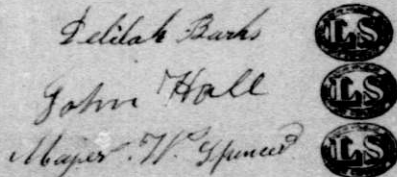 Delilah Barks LS
John Hall LS
Major W. Spencer LS